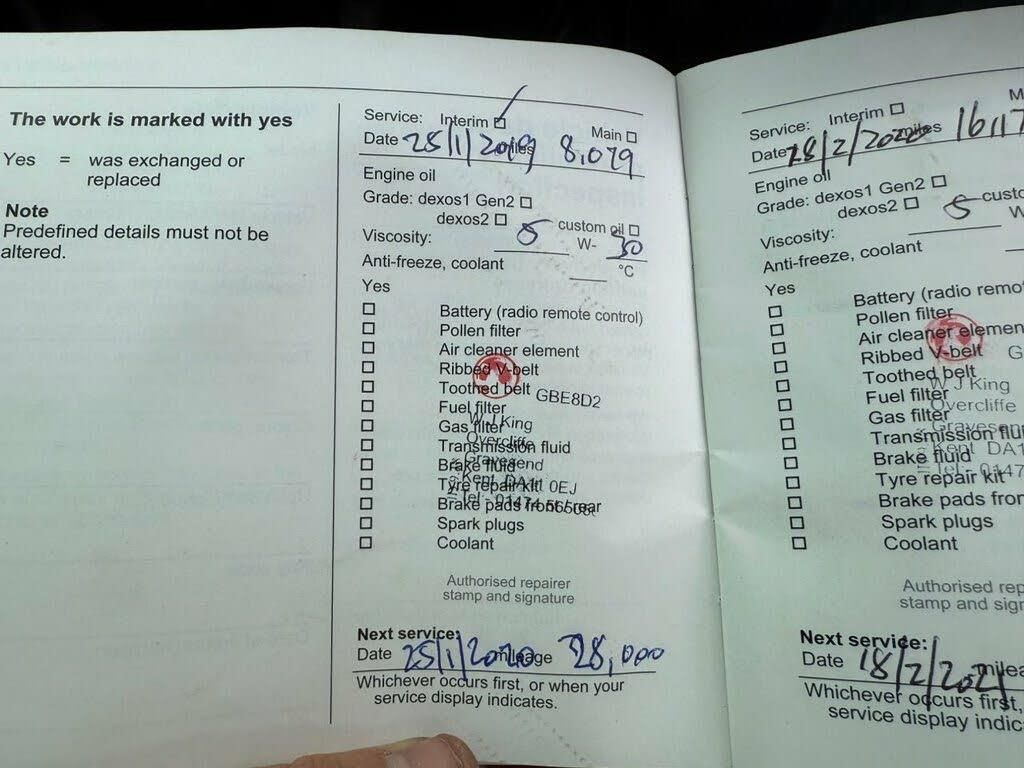 The work is marked with yes
Yes = was exchanged or
replaced
Note
Predefined details must not be
altered.
Service: Interim Main
Date 25/1/2019 miles 8,079
Engine oil
Grade: dexos1 Gen2
dexos2 custom oil
Viscosity: 5 W- 30
Anti-freeze, coolant °C
Yes
Battery (radio remote control)
Pollen filter
Air cleaner element
Ribbed V-belt
Toothed belt
GBE8D2
Fuel filter
Gas filter
W J King
Transmission fluid
Overcliffe
Gravesend
Brake fluid
Kent DA11 0EJ
Tyre repair kit
Tel:- 01474
Brake pads front / rear
Spark plugs
Coolant
Authorised repairer
stamp and signature
Next service:
Date 25/1/2020 mileage 28,000
Whichever occurs first, or when your
service display indicates.
Service: Interim M
Date 28/2/2020 miles 16,17
Engine oil
Grade: dexos1 Gen2
dexos2 custo
Viscosity: 5 W-
Anti-freeze, coolant
Yes
Battery (radio remot
Pollen filter
Air cleaner elemen
Ribbed V-belt G
Toothed belt
W J King
Fuel filter
Overcliffe
Gas filter
Gravesen
Transmission flui
Kent DA1
Brake fluid
Tel:- 0147
Tyre repair kit
Brake pads fron
Spark plugs
Coolant
Authorised rep
stamp and sign
Next service:
Date 18/2/2021 milea
Whichever occurs first,
service display indic